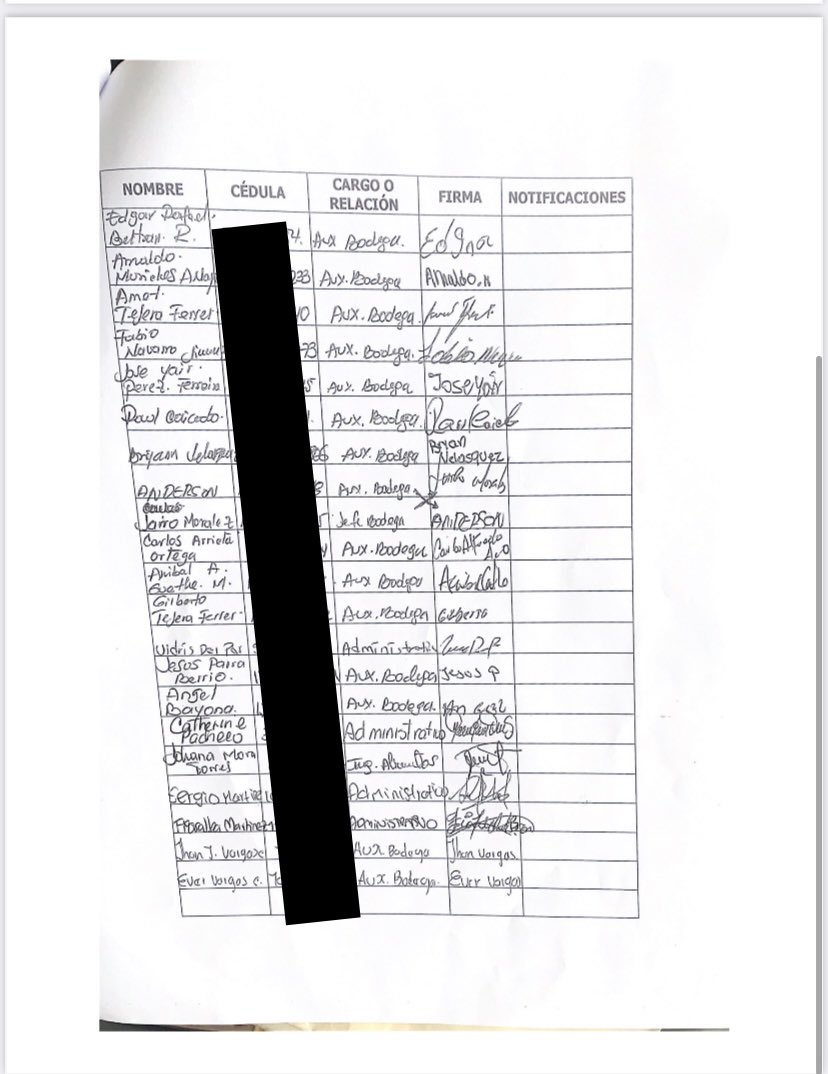 NOMBRE CÉDULA CARGO O RELACIÓN FIRMA NOTIFICACIONES
Edgar Rafael
Beltran. R. 4. Aux Bodega. Edgar
Arnaldo.
233 Aux. Bodega Arnaldo.
Amat.
Tejera Ferrer 10 Aux. Bodega
Fabio
Navarro 73 Aux. Bodega. Fabio
Jose yair.
perez. 15 Aux. Bodega Jose Yair
Paul Caicedo. Aux. Bodega
Bryann 06 Aux. Bodega Bryan
Velasquez
ANDERSON 3 Aux. Bodega
Jairo Morales Jefe Bodega ANDERSON
Carlos Arrieta
Ortega Aux. Bodega
Anibal A.
M. Aux Bodega
Gilberto
Tejera Ferrer Aux. Bodega Gilberto
Administrativo
Jesus Parra
Berrio. Aux. Bodega Jesus P
Angel
Bayona. Aux. Bodega. Angel
Catherine
Pacheco Administrativo
Johana Mora
Torres Ing.
Sergio Martinez Administrativo
Martinez Administrativo
Jhan J. Vargas Aux. Bodega Jhan Vargas
Ever Vargas C. Aux. Bodega. Ever Vargas